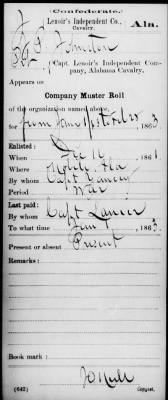 (Confederate.)
J Lenoir's Independent Co., Ala.
Cavalry.
J. P. Johnston
Capt. Lenoir's Independent Com-
pany, Alabama Cavalry.
Appears on
Company Muster Roll
of the organization named above,
for from June 1 to Oct 25, 1863
Enlisted:
When 16, 186
Where Mobile, Ala
By whom Capt
Period War
Last paid:
By whom Capt Lenoir
To what time 1, 1863
Present or absent Present
Remarks:
Book mark:
(642) Copyist.